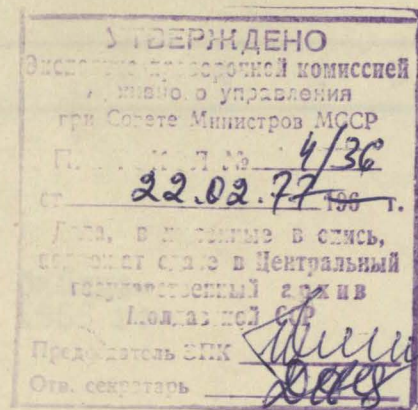 УТВЕРЖДЕНО
Экспертно-проверочной комиссией
Архивного управления
при Совете Министров МССР
ПРОТОКОЛ № 4/36
от 22.02.77 196 г.
Дела, внесенные в опись,
подлежат сдаче в Центральный
государственный архив
Молдавской ССР
Председатель ЭПК
Отв. секретарь